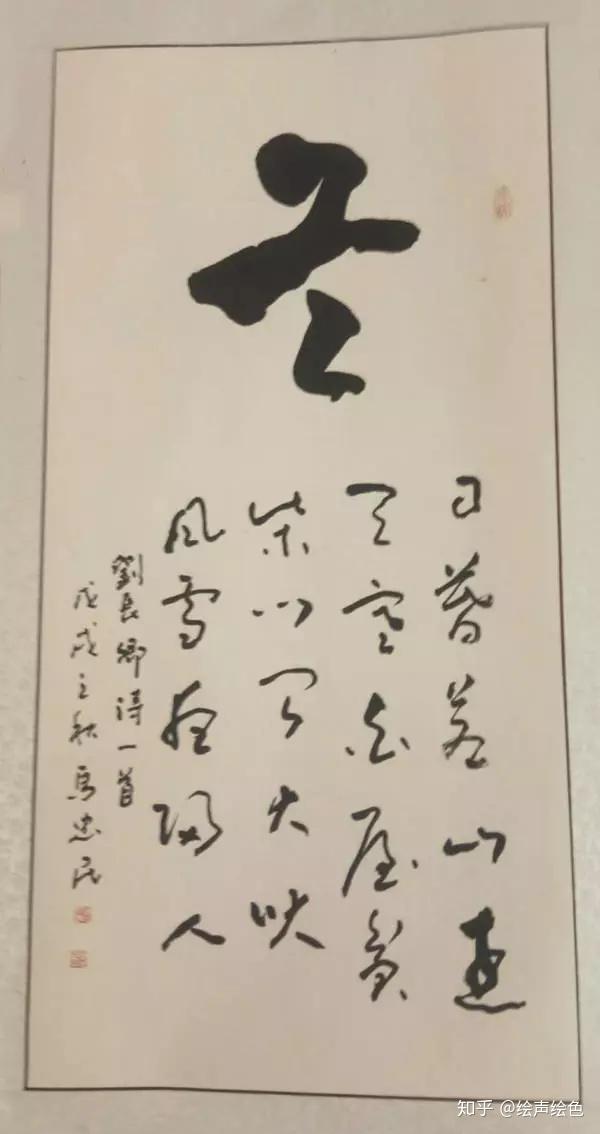 日暮蒼山遠
天寒白屋貧
柴门闻犬吠
風雪夜歸人
劉長卿诗一首
戊戌之秋馬忠民
知乎 @绘声绘色